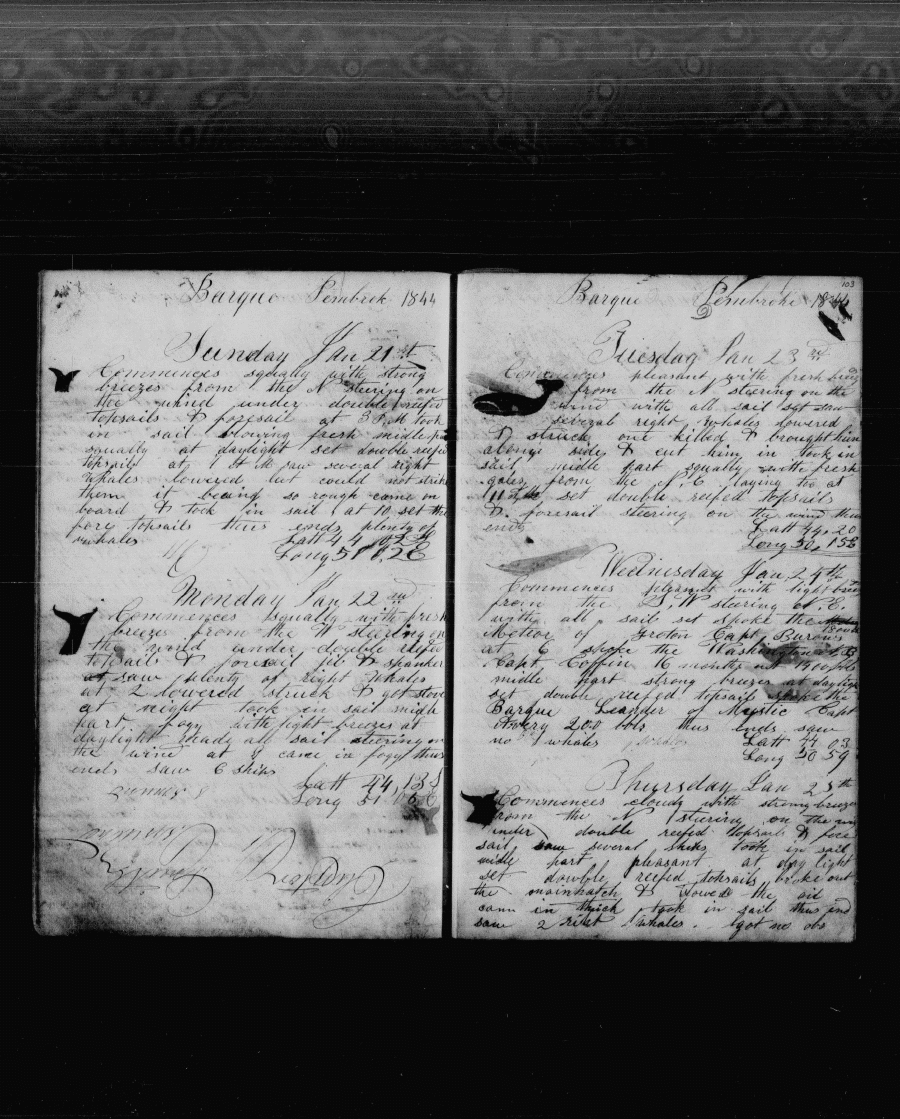 Barque Pembrok 1844
Sunday Jan 21st
Commences squally with strong
breezes from the N steering on
the wind under double reefed
topsails & foresail at 3 P.M took
in sail blowing fresh middle p
squally at daylight set double reefe
topsails at 1 saw several right
Whales lowered but could not strik
them it beaing so rough came on
board & took in sail at 10 set the
fore topsails thus ends plenty of
whales
Latt 44
Long 51
Monday Jan 22nd
Commences squally with fresh
breezes from the W steering on
the wind under double reefed
topsail & foresail jib & spanker
saw plenty of right Whales
at 2 lowered struck & got stove
at night took in sail middle
part fogy with light breezes at
daylight made all sail steering on
the wind at 9 came in foggy thus
ends saw 6 ships
Latt 44,13 S
Long 51
103
Barque Pembroke 1844
Tuesday Jan 23rd
pleasant with fresh
from the N steering on the
wind with all sail set saw
several right whales lowered
& struck one killed & brought him
along side & cut him in took in
sail midle part squally with fresh
gales from the N E laying to at
set double reefed topsails
& foresail steering on the wind thus
ends
Latt 44,20
Long 50,15 E
Wednesday Jan 24th
Commences pleasant with light
from the S,W steering
with all sail set spoke the
Meteor of Groton Capt Burows
at 6 spoke the Washington
Capt Coffin 16 months out
midle part strong breezes at daylight
set double reefed topsails spoke the
Barque Leander of Mystic Capt
200 bbls thus ends saw
no whales
Latt 44 03
Long 50 59
Thursday Jan 25th
Commences cloudy with strong breezes
from the N steering on the
under double reefed topsails & fore
sail saw several ships took in sail
midle part pleasant at day light
set double reefed topsails broke out
the mainhatch & stowed the oil
came in thick took in sail thus end
saw 2 right whales. got no obs